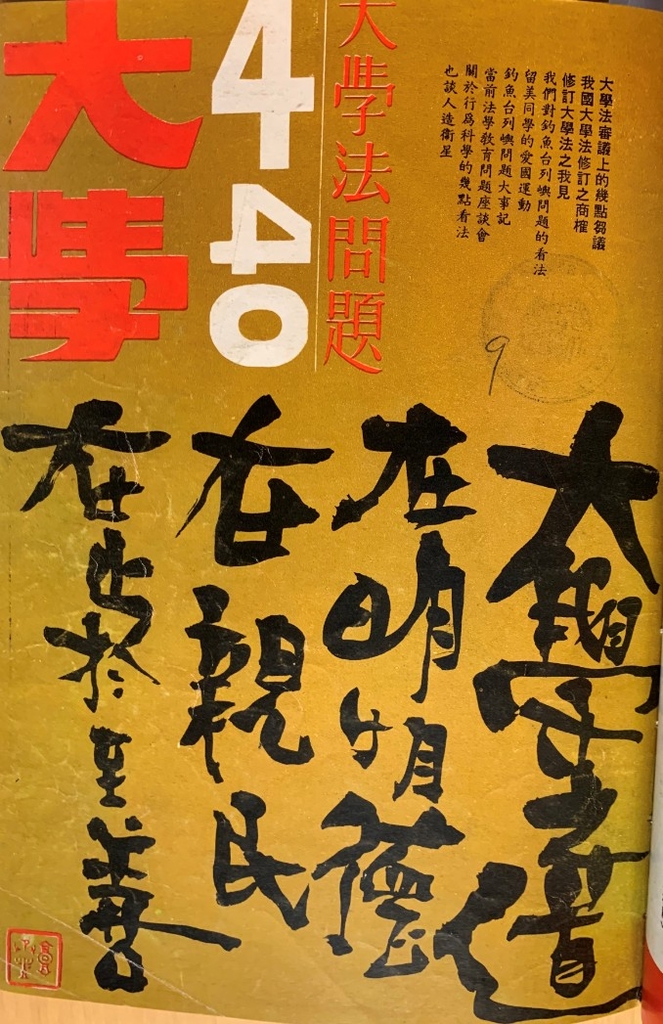 大學
4 40
大學法問題
大學法審議上的幾點芻議
我國大學法修訂之商榷
修訂大學法之我見
我們對釣魚台列嶼問題的看法
留美同學的愛國運動
釣魚台列嶼問題大事記
當前法學教育問題座談會
關於行爲科學的幾點看法
也談人造衛星
9
大學之道
在明明德
在親民
在止於至善